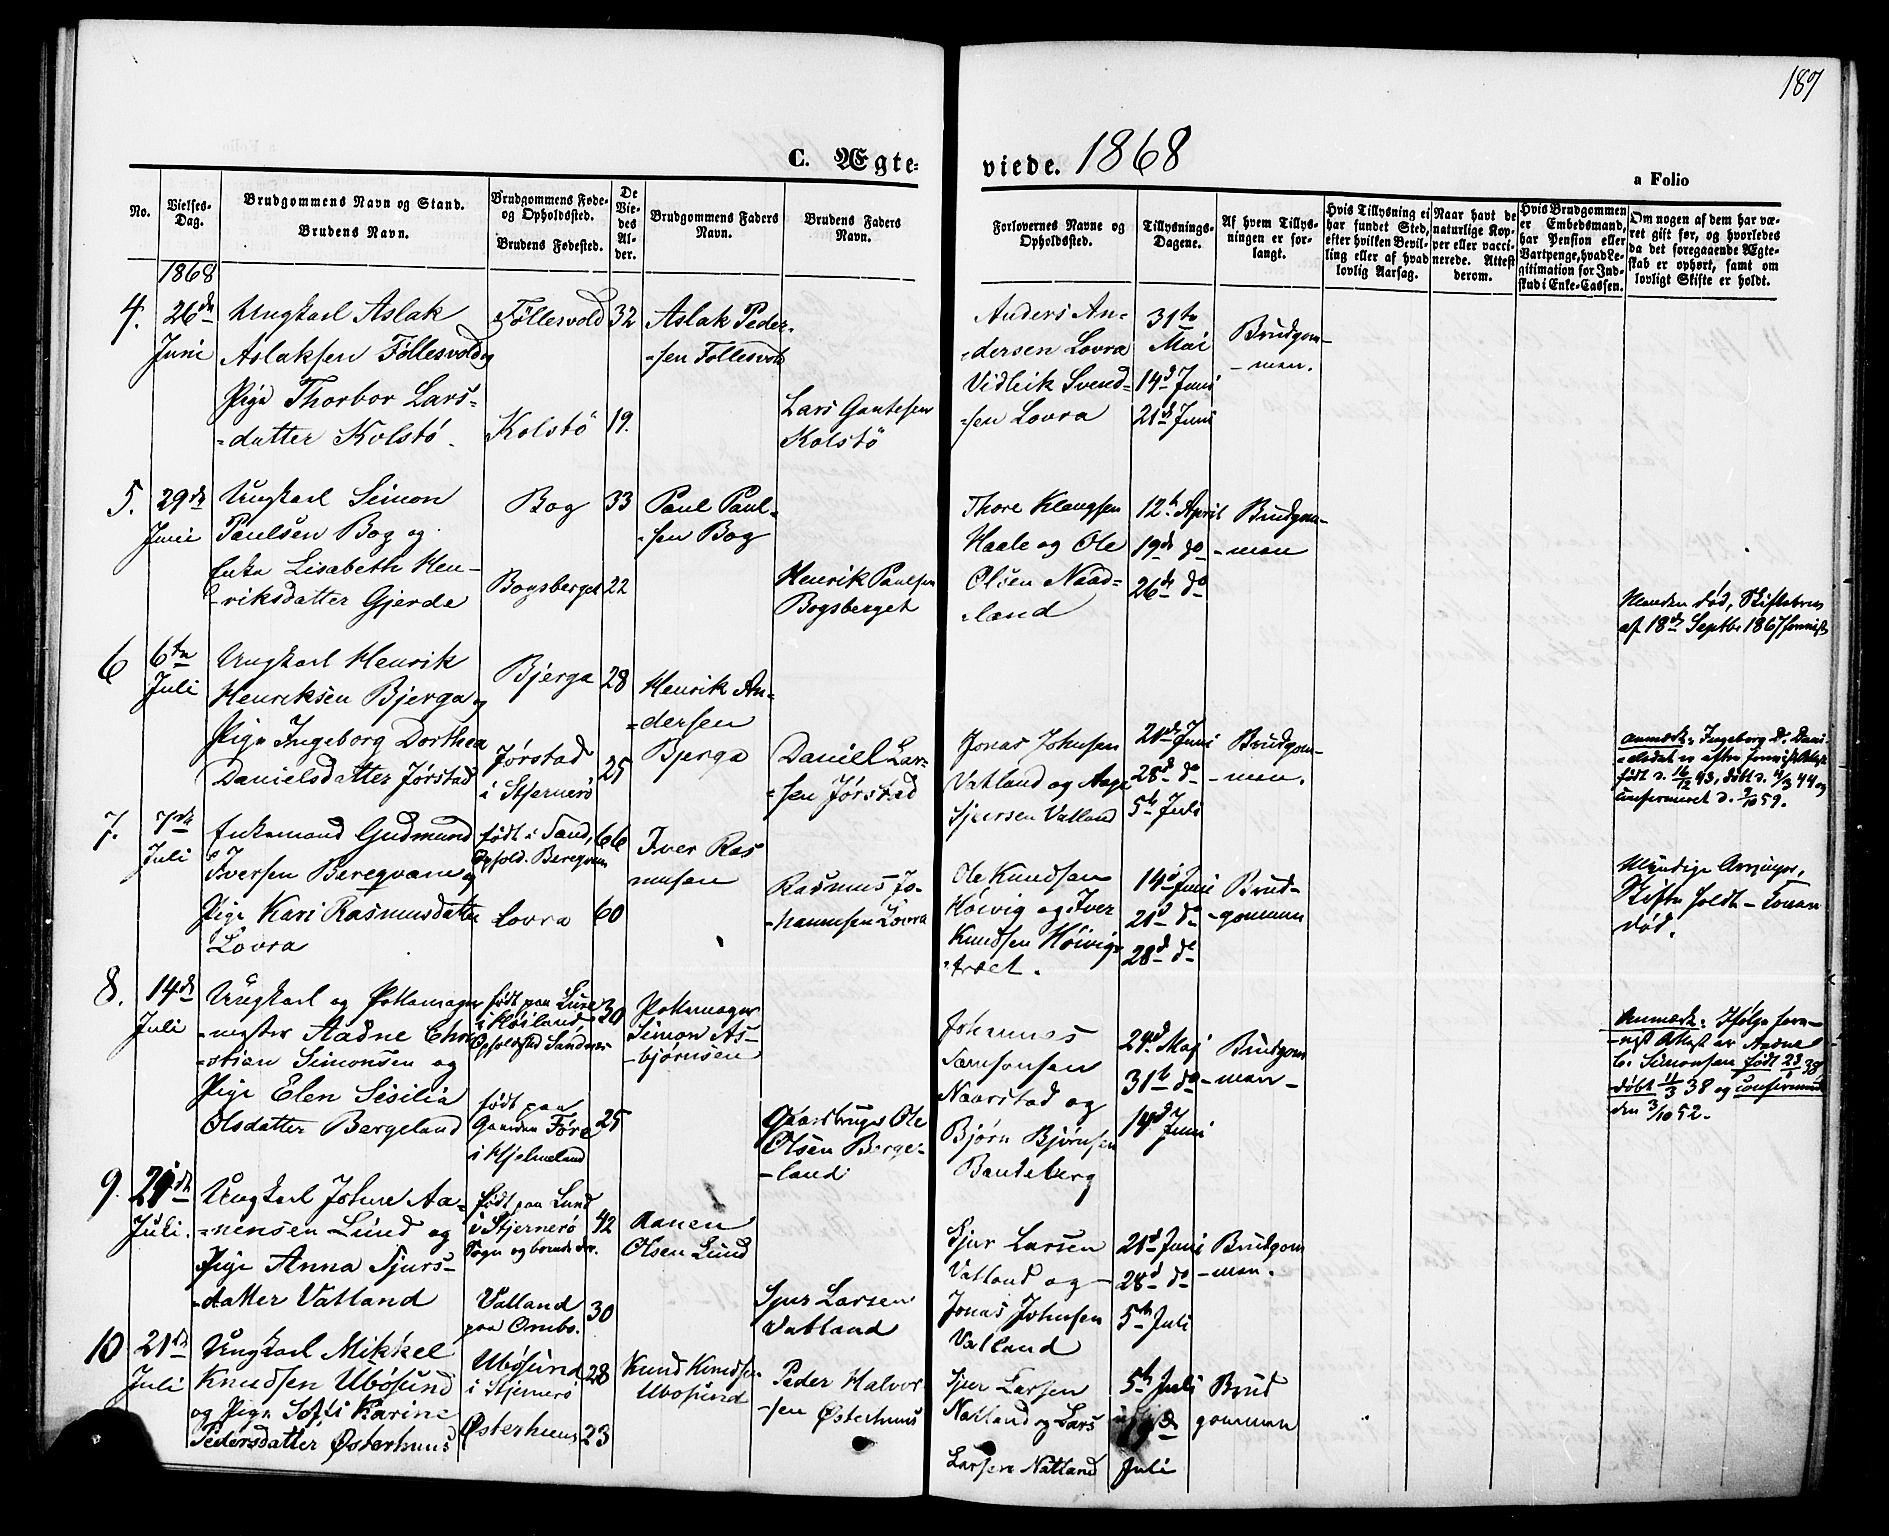 187
C. Ægteviede. 1868
a Folio
No.
Vielses-Dag.
Brudgommens Navn og Stand.
Brudens Navn.
Brudgommens Føde- og Opholdsted.
Brudens Fødested.
De Viedes Alder.
Brudgommens Faders Navn.
Brudens Faders Navn.
Forlovernes Navne og Opholdssted.
Tillysnings-Dagene.
Af hvem Tillysningen er forlangt.
Hvis Tillysning ei har fundet Sted, efter hvilken Bevilling eller af hvad lovlig Aarsag.
Naar havt de naturlige Kopper eller vaccinerede. Attest derom.
Hvis Brudgommen er Embedsmand, har Pension eller Vartpenge, hvad Legitimation for Indskud i Enke-Cassen.
Om nogen af dem har været gift før, og hvorledes da det foregaaende Ægteskab er ophørt, samt om lovligt Skifte er holdt.
1868
4. 26de Juni
Ungkarl Aslak
Aslaksen Föllesvold og
Pige Thorbor Lars-
=datter Kolstö.
Föllesvold 32
Kolstö 19.
Aslak Peder-
=sen Follesvold
Lars Gautesen
Kolstö
Anders An-
=dersen Lovra
Vidleik Svend-
=sen Lovra
31te Mai
14d Juni
21de Juni
Brudgom-
-men.
5. 29de Juni
Ungkarl Simon
Paulsen Bog og
Enke Lisabeth Hen-
-riksdatter Gjerde
Bog 33
Bogsberget 22
Paul Paul-
-sen Bog
Henrik Paulsen
Bogsberget
Thore Klengsen
Haale og Ole
Olsen Naad-
=land
12te April
19de do
26de do
Brudgom-
-men
Manden död, Skiftebrev
af 18de Septbr 1867 forevist
6 6te Juli
Ungkarl Henrik
Henriksen Bjerga og
Pige Ingeborg Dorthea
Danielsdatter Jørstad
Bjerga 28
Jørstad
i Stjernerö 25
Henrik An-
=dersen
Bjerga
Daniel Lar-
=sen Jørstad
Jonas Johnsen
Vatland og Aage
Sjursen Vatland
21d Juni
28d do
5te Juli
Brudgom-
-men.
Anmærk: Ingeborg D. Dani-
=elsdat er efter forevist Attest
født d. 16/12 43, døbt d. 4/3 44 og
confirmeret d. 9/10 59.
7. 7de Juli
Enkemand Gudmund
Iversen Beregvam og
Pige Kari Rasmusdatter
Lovra
født i Sand,
Ophold. Beregvam 66
Lovra 60
Iver Ras
musen
Rasmus Jo-
=hannesen Lovra
Ole Knudsen
Höivig og Iver
Knudsen Höivig-
-træet.
14d Juni
21d do
28d do
Brud-
-gommen
Myndige Arvinger,
Skifte holdt – Konen
död.
8. 14de Juli
Ungkarl og Pottemager
-mester Aadne Chri
=stian Simonsen og
Pige Elen Sisilia
Olsdatter Bergeland
født paa Lure
i Høiland
Opholdsted Sandnes 30
født paa
Gaarden Føre
i Hjelmeland 25
Pottemager
Simon As-
-bjørnsen
Gaardbruger Ole
Olsen Berge-
-land
Johannes
Samsonsen
Naarstad og
Bjørn Bjørnsen
Bandeberg
24d Maj
31te do
14d Juni
Brudgom
-men-
Anmærk: Ifölge fore-
-vist Attest er Aadne
C. Simonsen født 23/1 38
døbt 11/3 38 og confirmeret
den 3/10 52.
9. 21de Juli.
Ungkarl Johne Aa-
-nensen Lund og
Pige Anna Sjurs-
-datter Vatland
født paa Lund
i Stjernerö
Sogn og boende der. 42
Vatland
paa Ombo. 30
Aanen
Olsen Lund
Sjur Larsen
Vatland
Sjur Larsen
Vatland og
Jonas Johnsen
Vatland
21d Juni
28d do
5te Juli
Brudgom
-men.
10 21de Juli
Ungkarl Mikkel
Knudsen Ubøsund
og Pige Sofie Karine
Pedersdatter Østerhuus
Ubøsund
i Stjernerö 28
Østerhuus 23
Knud Knudsen
Ubøsund
Peder Halvor-
-sen Østerhuus
Sjur Larsen
Natland og Lars
Larsen Natland
5te Juli
19de
Juli
Brud
gommen